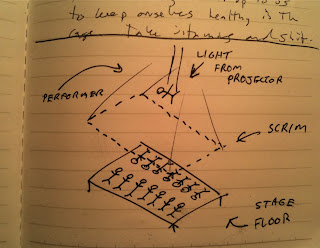 to keep ourselves healthy is the
take vitamins and shit.
LIGHT
FROM
PROJECTOR
PERFORMER
SCRIM
STAGE
FLOOR